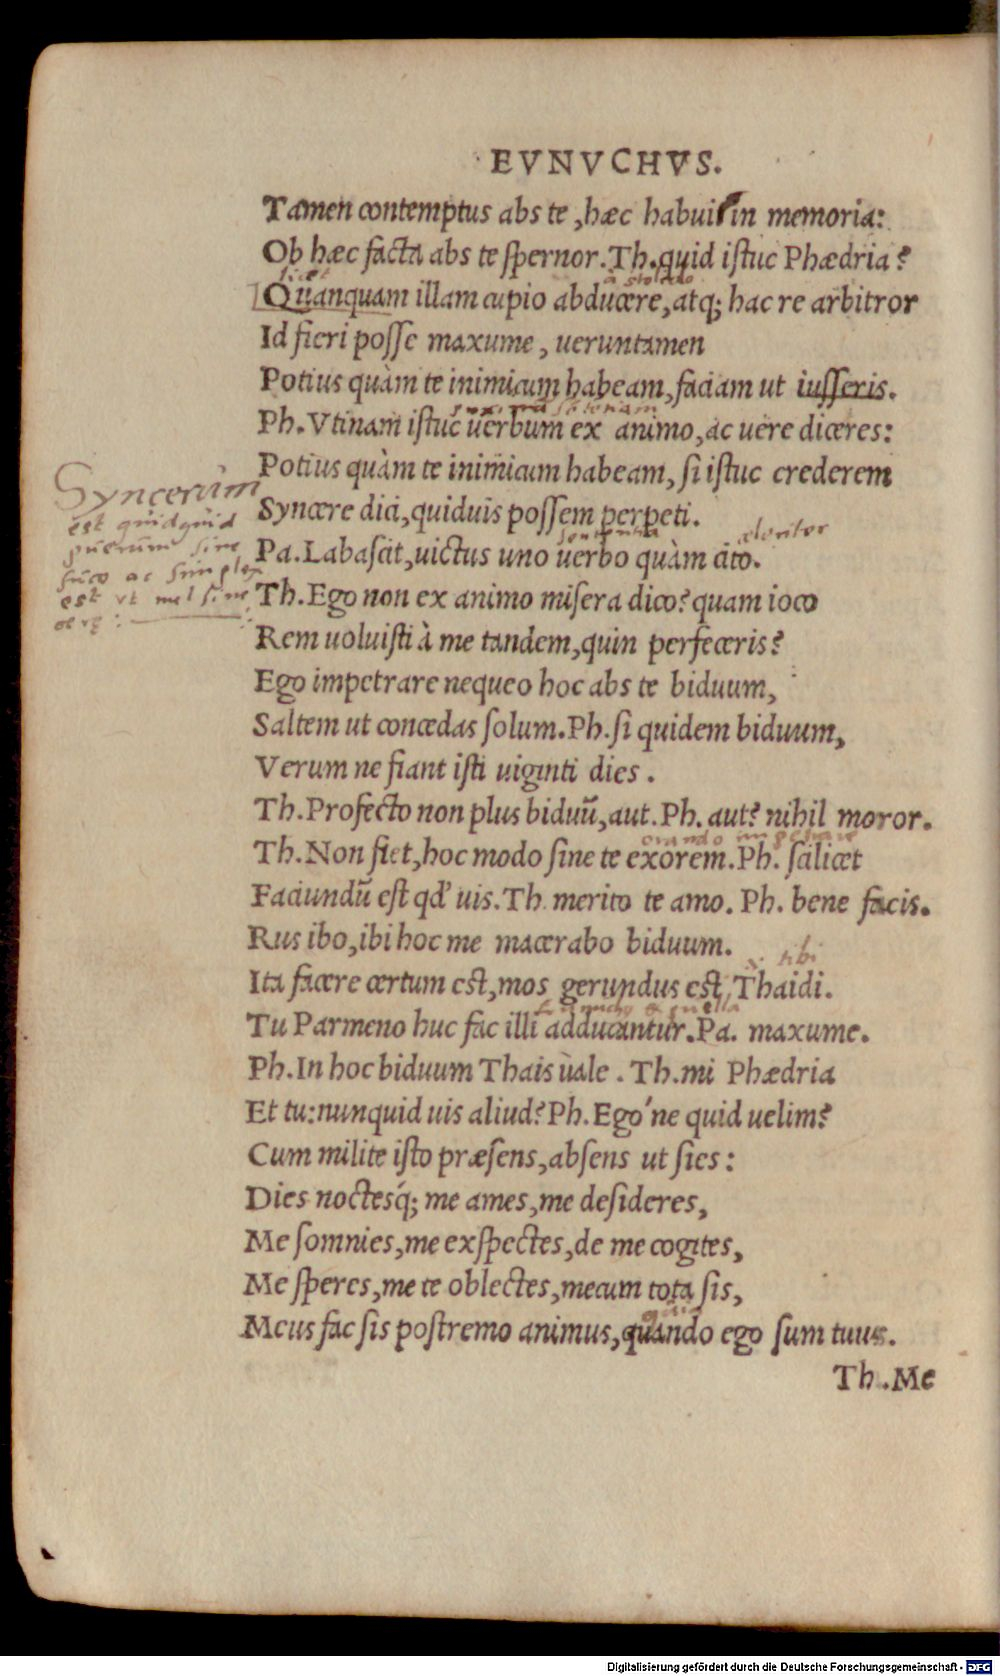 EVNVCHVS.
Tamen contemptus abs te, hæc habui in memoria:
Ob hæc facta abs te ſpernor. Th. quid iſtuc Phædria?
licet
Quanquam illam cupio abducere, atq; hac re arbitror
Id fieri poſſe maxume, ueruntamen
Potius quàm te inimicum habeam, faciam ut iuſſeris.
Ph. Vtinam iſtuc uerbum ex animo, ac uere diceres:
Potius quàm te inimicum habeam, ſi iſtuc crederem
Syncerum
est quidquid
purum sine
fuco ac simplex
est ut mel sine
Syncere dici, quiduis poſſem perpeti.
sententia celeriter
Pa. Labaſcit, uictus uno uerbo quàm cito.
Th. Ego non ex animo miſera dico? quam ioco
Rem uoluiſti à me tandem, quin perfeceris?
Ego impetrare nequeo hoc abs te biduum,
Saltem ut concedas ſolum. Ph. ſi quidem biduum,
Verum ne fiant iſti uiginti dies.
Th. Profecto non plus biduũ, aut. Ph. aut? nihil moror.
orando impetrare
Th. Non fiet, hoc modo ſine te exorem. Ph. ſcilicet
Faciundũ eſt qđ uis. Th. merito te amo. Ph. bene facis.
Rus ibo, ibi hoc me macerabo biduum.
tibi
Ita facere certum eſt, mos gerundus eſt Thaidi.
Eunucho & puella
Tu Parmeno huc fac illi adducantur. Pa. maxume.
Ph. In hoc biduum Thais uale. Th. mi Phædria
Et tu: nunquid uis aliud? Ph. Ego'ne quid uelim?
Cum milite iſto præſens, abſens ut ſies:
Dies noctesq́; me ames, me deſideres,
Me ſomnies, me exſpectes, de me cogites,
Me ſperes, me te oblectes, mecum tota ſis,
quia
Meus fac ſis poſtremo animus, quando ego ſum tuus.
Th. Me
Digitalisierung gefördert durch die Deutsche Forschungsgemeinschaft - DFG